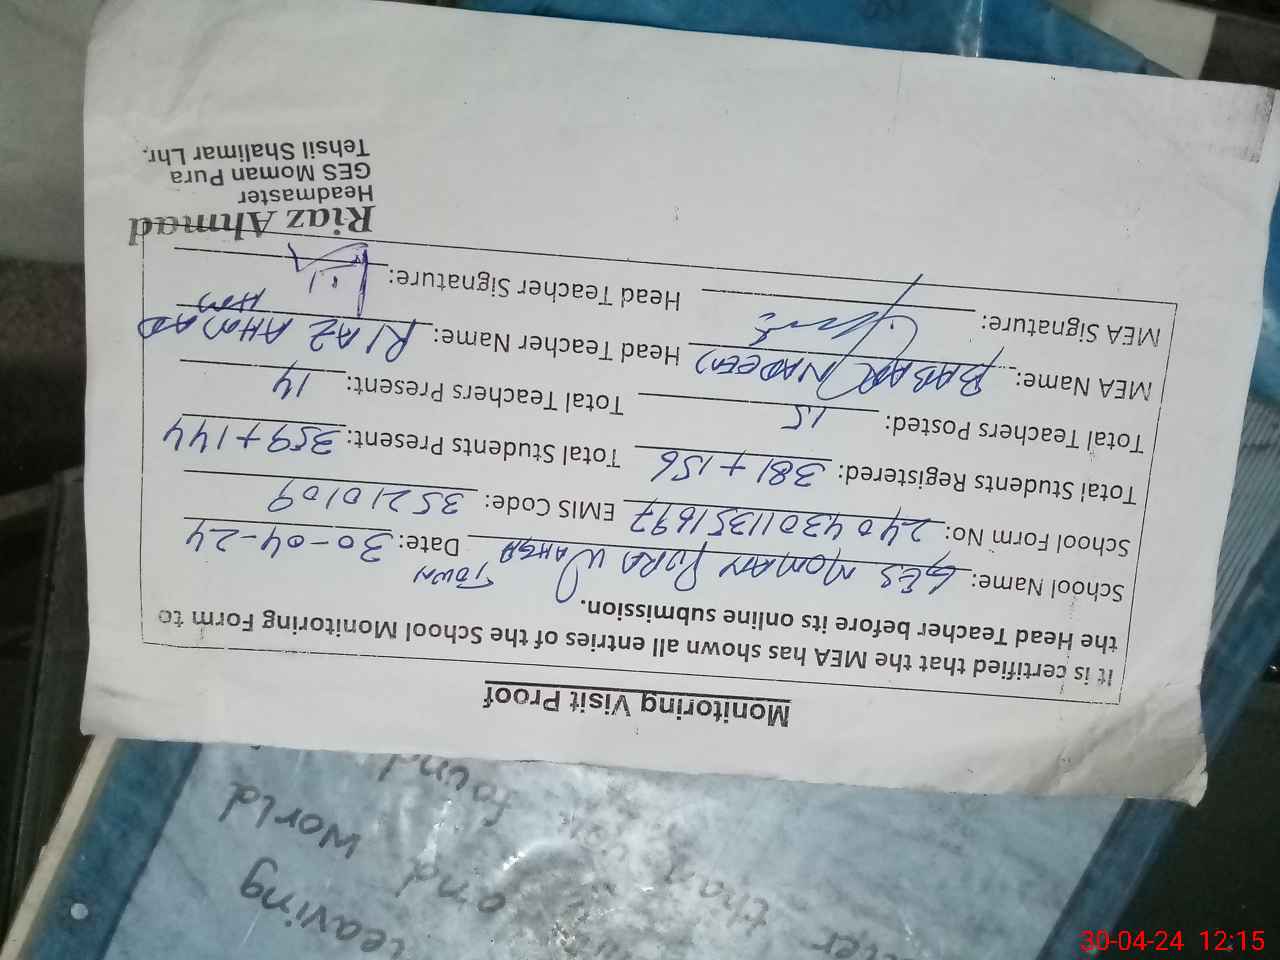 Monitoring Visit Proof
It is certified that the MEA has shown all entries of the School Monitoring Form to
the Head Teacher before its online submission.
School Name: GES MOMAN PURA WAHGA TOWN Date: 30-04-24
School Form No: 24043011351697 EMIS Code: 35210109
Total Students Registered: 381+156 Total Students Present: 359+144
Total Teachers Posted: 15 Total Teachers Present: 14
MEA Name: BABAR NADEEM Head Teacher Name: RIAZ AHMAD HM
MEA Signature: Head Teacher Signature:
Riaz Ahmad
Headmaster
GES Moman Pura
Tehsil Shalimar Lhr.
leaving
and world
than
found
30-04-24 12:15